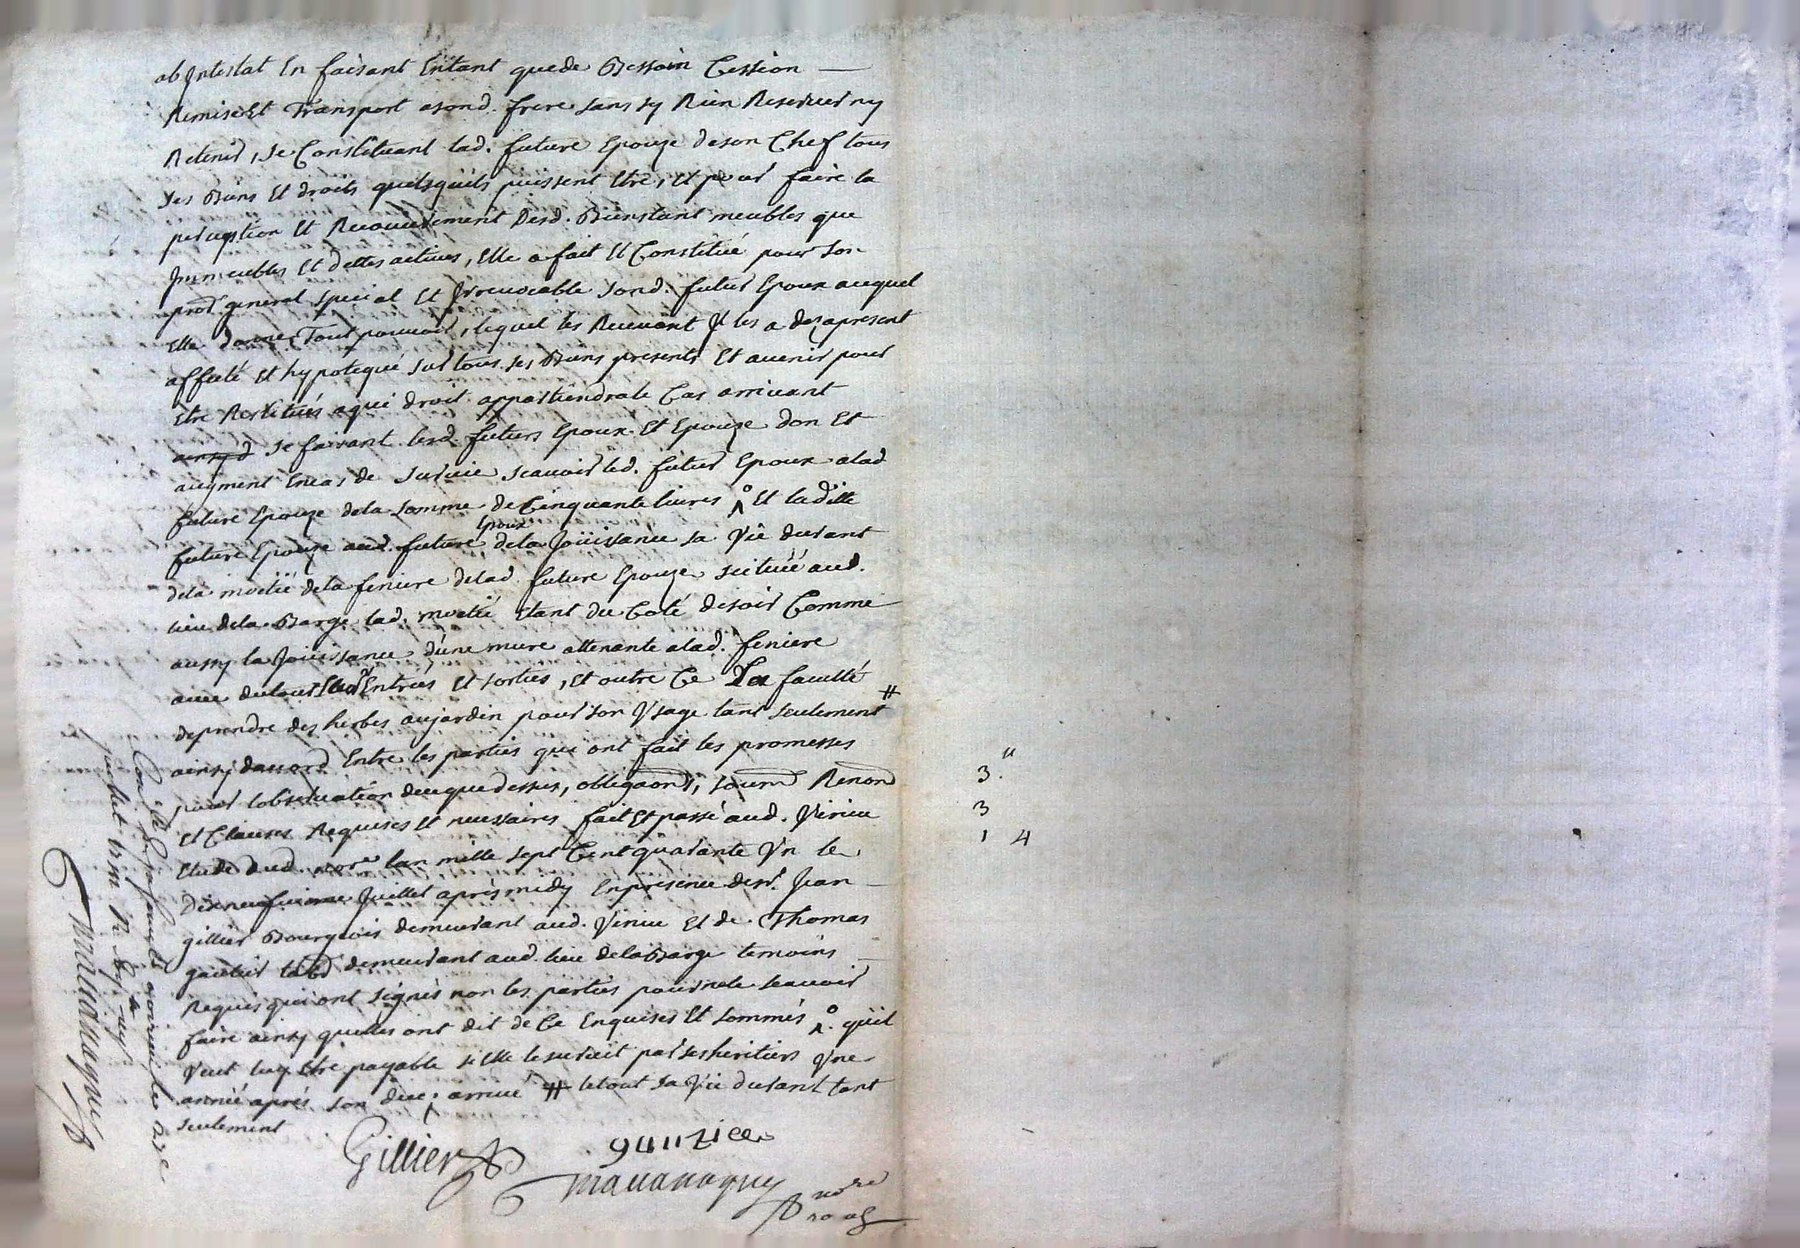 ab Intestat En faisant Entant que de Bessoin Cession
Remise Et Transport a sond. frere sans sy Rien Reserver ny
Retenir, se Constituant lad. future Epouze de son Chef tous
ses Biens Et droits quelsquils puissent Etre, Et pour faire la
perception Et Recouvrement Desd. Biens tant meubles que
Immeubles Et dettes actives, Elle a fait Et Constitué pour son
procr. general special Et Irrevocable sond. futur Epoux auquel
Elle donne Tout pouvoir, lequel les Recevant Il les a dez apresent
affecté Et hypotequé sur tous ses Biens presents Et avenir pour
Etre Restitués a qui droit appartiendra le Cas arrivant
se faisant lesd. futurs Epoux Et Epouze don Et
augment En cas de survie scavoir led. futur Epoux alad
future Epouze dela somme de Cinquante livres Et laditte
Epoux
future Epouze aud. future dela Joüissance sa Vie durant
dela moitié dela feniere delad. future Epouze scituée aud.
lieu dela Barge lad. moitié Etant du Coté de soir Comme
aussy la Joüissance d'une mure attenante alad. feniere
avec Entrées Et sorties, Et outre Ce La faculté
de prendre des herbes au jardin pour son Usage tant seulement #
ainsy dacord Entre les parties qui ont fait les promesses
pour lobservation de ce que dessus, obligaons, soum Renon
Et Clauses Requises Et necessaires fait Et passé aud. Virieu
Etude dud. nore lan mille sept Cent quarante Vn le
Dixneufvieme Juillet apres midy En presence de sr. Jean
gillier Bourgeois demeurant aud. Virieu Et de Thomas
gautier demeurant aud. lieu dela Barge temoins
Requis qui ont signés non les parties pour ne le scavoir
faire ainsy quelles ont dit de Ce Enquises Et sommés qu'il
Veut Etre payable si Elle le survit par ses heritiers Vne
année après son deces arrivé # le tout sa Vie durant tant
seulement
Gillier
gautier
mavanaque
nore
roal
juillet
mavanaque
3 "
3
1 4